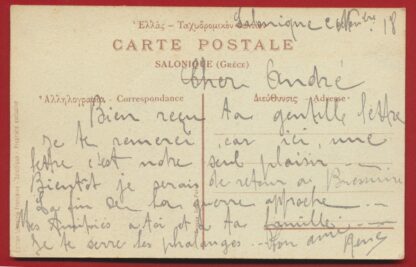 Ἑλλὰς - Ταχυδρομικὸν
Salonique 18
CARTE POSTALE
SALONIQUE (GRÈCE)
Cher André
Ἀλληλογραφία - Correspondance
Διεύθυνσις - Adresse
Bien reçu ta gentille lettre
je te remerci car ici, une
lettre c'est notre seul plaisir
Bientot je serais de retour a Bressuire
La fin de la guerre approche
Mes Amitiés a toi et a ta famille
Je te serre les phalanges Ton ami René